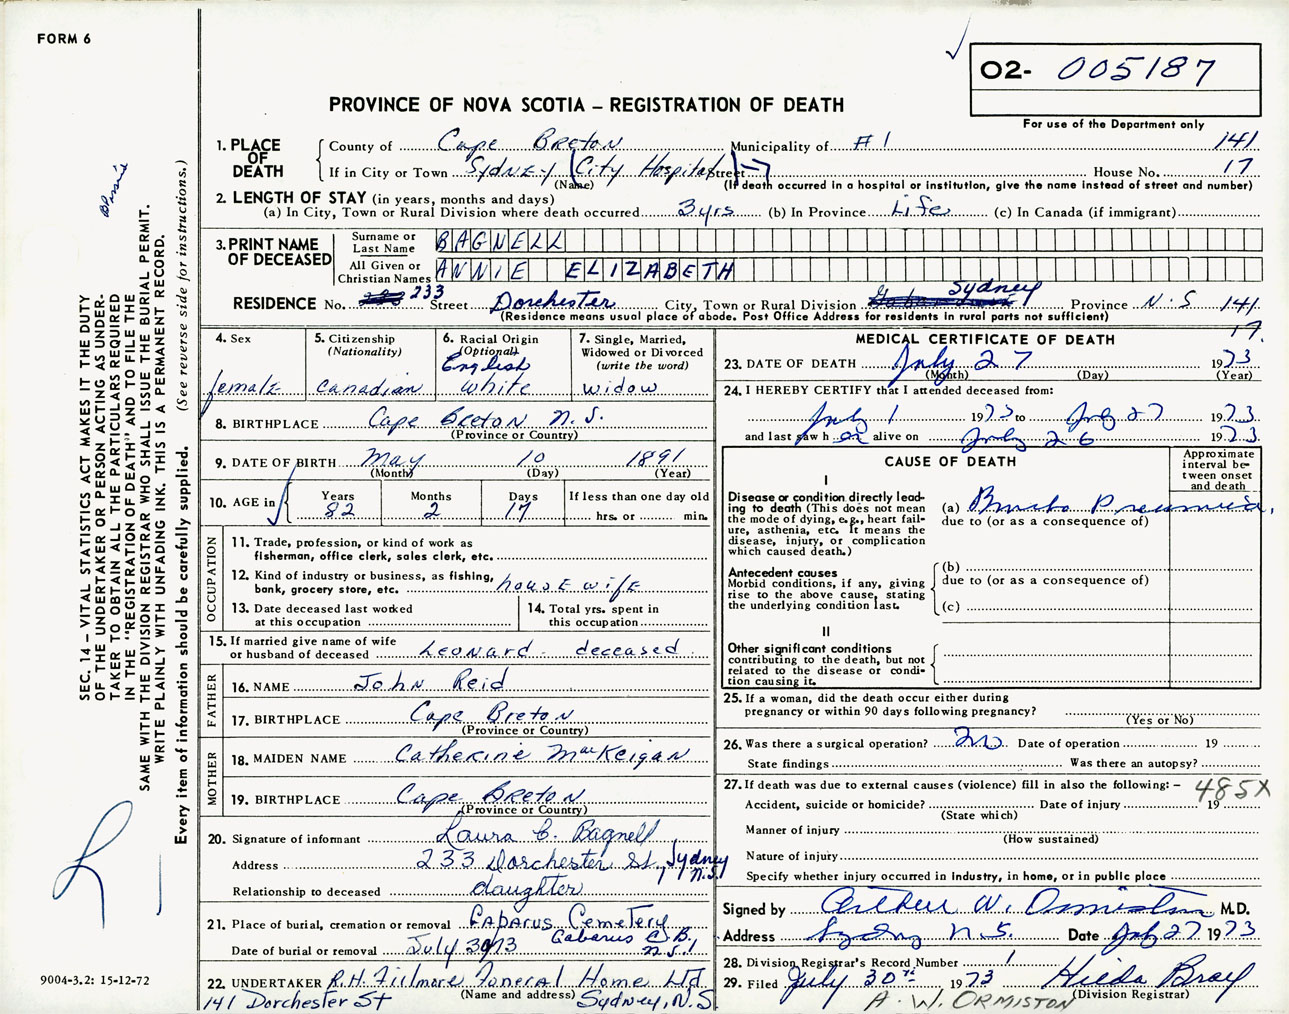 FORM 6
O2- 005187
PROVINCE OF NOVA SCOTIA – REGISTRATION OF DEATH
For use of the Department only
1. PLACE OF DEATH
County of Cape Breton Municipality of #1 141
If in City or Town Sydney (City Hospital) Street House No. 17
(Name) (If death occurred in a hospital or institution, give the name instead of street and number)
2. LENGTH OF STAY (in years, months and days)
(a) In City, Town or Rural Division where death occurred 3 yrs (b) In Province Life (c) In Canada (if immigrant)
3. PRINT NAME OF DECEASED
Surname or Last Name BAGNELL
All Given or Christian Names ANNIE ELIZABETH
RESIDENCE No. 233 Street Dorchester City, Town or Rural Division Sydney Province N.S 141
(Residence means usual place of abode. Post Office Address for residents in rural parts not sufficient) 17.
4. Sex female
5. Citizenship (Nationality) Canadian
6. Racial Origin (Optional) English white
7. Single, Married, Widowed or Divorced (write the word) widow
8. BIRTHPLACE Cape Breton N.S.
(Province or Country)
9. DATE OF BIRTH May 10 1891
(Month) (Day) (Year)
10. AGE in Years 82 Months 2 Days 17 If less than one day old hrs. or min.
OCCUPATION
11. Trade, profession, or kind of work as fisherman, office clerk, sales clerk, etc.
12. Kind of industry or business, as fishing, bank, grocery store, etc. housewife
13. Date deceased last worked at this occupation
14. Total yrs. spent in this occupation
15. If married give name of wife or husband of deceased Leonard - deceased
FATHER
16. NAME John Reid
17. BIRTHPLACE Cape Breton
(Province or Country)
MOTHER
18. MAIDEN NAME Catherine MacKeigan
19. BIRTHPLACE Cape Breton
(Province or Country)
20. Signature of informant Laura C. Bagnell
Address 233 Dorchester St, Sydney N.S.
Relationship to deceased daughter
21. Place of burial, cremation or removal Gabarus Cemetery
Date of burial or removal July 30/73 Gabarus C.B. N.S.
22. UNDERTAKER R.H. Fillmore Funeral Home Ltd
(Name and address)
141 Dorchester St Sydney, N.S
MEDICAL CERTIFICATE OF DEATH
23. DATE OF DEATH July 27 1973
(Month) (Day) (Year)
24. I HEREBY CERTIFY that I attended deceased from:
July 1 1973 to July 27 1973
and last saw her alive on July 26 1973
CAUSE OF DEATH
Approximate interval between onset and death
I
Disease or condition directly leading to death (This does not mean the mode of dying, e.g., heart failure, asthenia, etc. It means the disease, injury, or complication which caused death.)
(a) Broncho Pneumonia.
due to (or as a consequence of)
Antecedent causes
Morbid conditions, if any, giving rise to the above cause, stating the underlying condition last.
(b)
due to (or as a consequence of)
(c)
II
Other significant conditions contributing to the death, but not related to the disease or condition causing it.
25. If a woman, did the death occur either during pregnancy or within 90 days following pregnancy?
(Yes or No)
26. Was there a surgical operation? no Date of operation 19
State findings Was there an autopsy?
27. If death was due to external causes (violence) fill in also the following: – 485X
Accident, suicide or homicide? Date of injury 19
(State which)
Manner of injury
(How sustained)
Nature of injury
Specify whether injury occurred in industry, in home, or in public place
Signed by Arthur W. Ormiston M.D.
Address Sydney N.S. Date July 27 1973
28. Division Registrar's Record Number 1
29. Filed July 30th 1973 Hilda Bray
(Division Registrar)
A. W. ORMISTON
SEC. 14 – VITAL STATISTICS ACT MAKES IT THE DUTY
OF THE UNDERTAKER OR PERSON ACTING AS UNDER-
TAKER TO OBTAIN ALL THE PARTICULARS REQUIRED
IN THE "REGISTRATION OF DEATH" AND TO FILE THE
SAME WITH THE DIVISION REGISTRAR WHO SHALL ISSUE THE BURIAL PERMIT.
WRITE PLAINLY WITH UNFADING INK. THIS IS A PERMANENT RECORD.
Every item of information should be carefully supplied. (See reverse side for instructions.)
9004-3.2: 15-12-72